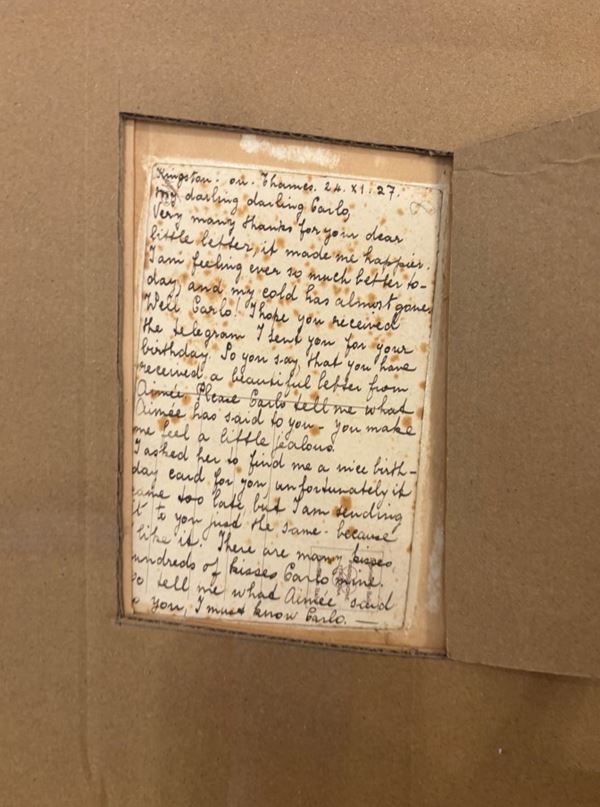 Kingston. on. Thames. 24. XI. 27.
My darling darling Carlo,
Very many thanks for your dear
little letter, it made me happier.
I am feeling ever so much better to-
day, and my cold has almost gone.
Well Carlo! I hope you received
the telegram I sent you for your
birthday. So you say, that you have
received a beautiful letter from
Aimée. Please Carlo tell me what
Aimée has said to you - you make
me feel a little jealous.
I asked her to find me a nice birth-
day card for you, unfortunately it
came too late, but I am sending
it to you just the same. because
I like it. There are many kisses,
hundreds of kisses Carlo mine.
so tell me what Aimée said
to you, I must know Carlo. —